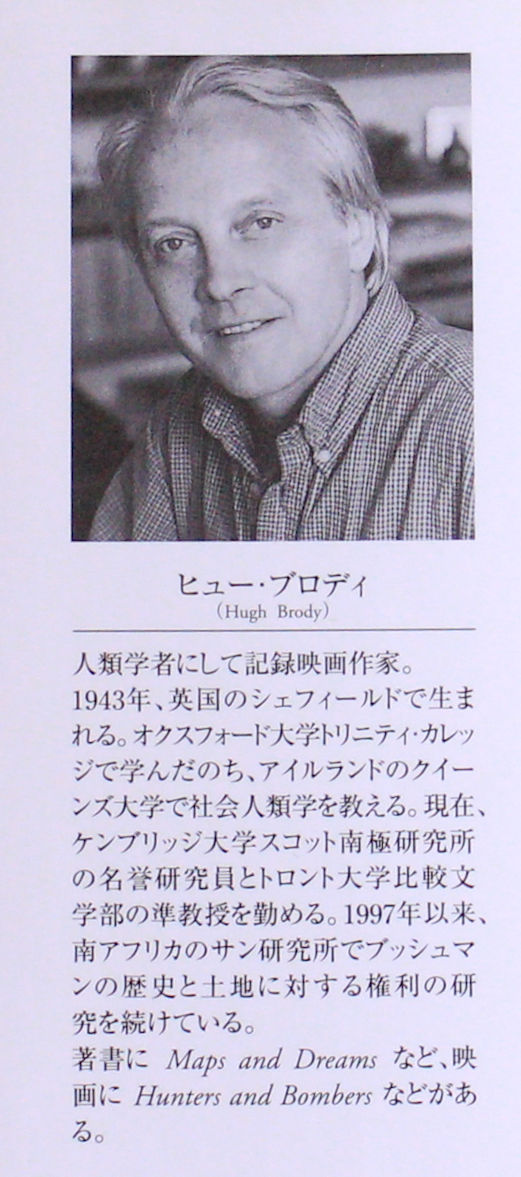 ヒュー・ブロディ
（Hugh Brody）
人類学者にして記録映画作家。
1943年、英国のシェフィールドで生ま
れる。オクスフォード大学トリニティ・カレッ
ジで学んだのち、アイルランドのクイー
ンズ大学で社会人類学を教える。現在、
ケンブリッジ大学スコット南極研究所
の名誉研究員とトロント大学比較文
学部の準教授を勤める。1997年以来、
南アフリカのサン研究所でブッシュマ
ンの歴史と土地に対する権利の研
究を続けている。
著書に Maps and Dreams など、映
画に Hunters and Bombers などがあ
る。